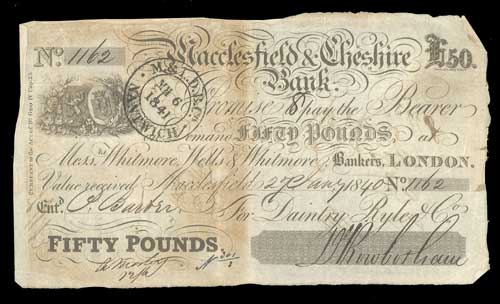 No. 1162
Macclesfield & Cheshire
£50.
Bank.
M. & L. D. B. Co.
6
1841
Promise to pay the Bearer
on Demand FIFTY POUNDS at
Messrs Whitmore, Wells & Whitmore Bankers, LONDON.
Value received Macclesfield 27 Jany 1840 No. 1162
Entd.
For Daintry, Ryle & Co.
FIFTY POUNDS.